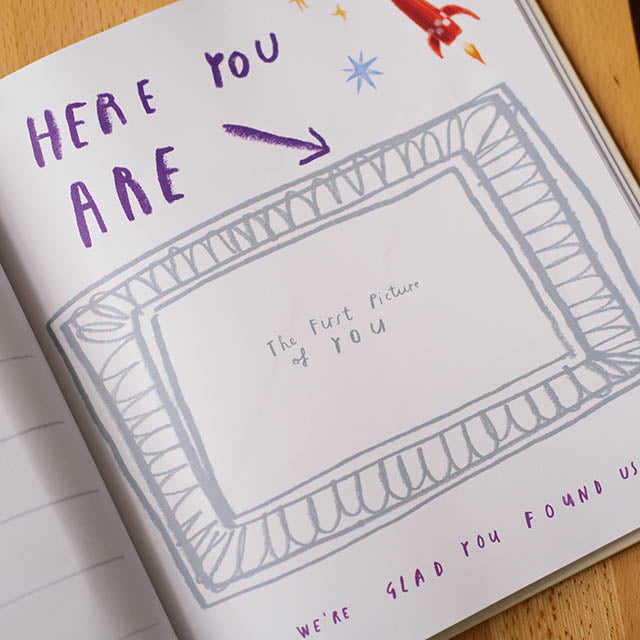 HERE YOU
ARE
The First Picture
of YOU
WE'RE GLAD YOU FOUND US